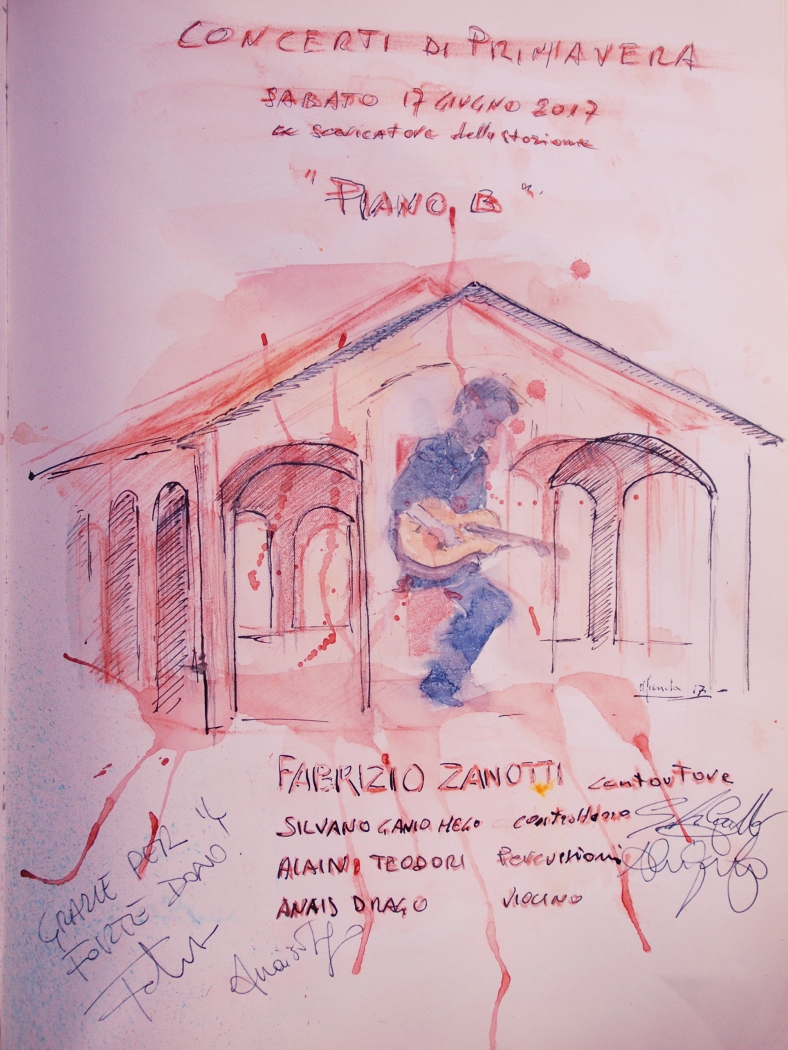 CONCERTI DI PRIMAVERA
SABATO 17 GIUGNO 2017
ex scaricatore della stazione
"PIANO B"
17
FABRIZIO ZANOTTI cantautore
SILVANO GANIO MEGO contrabbasso
ALAIN TEODORI Percussioni
ANAIS DRAGO VIOLINO
GRAZIE PER IL
FORTE DONO!